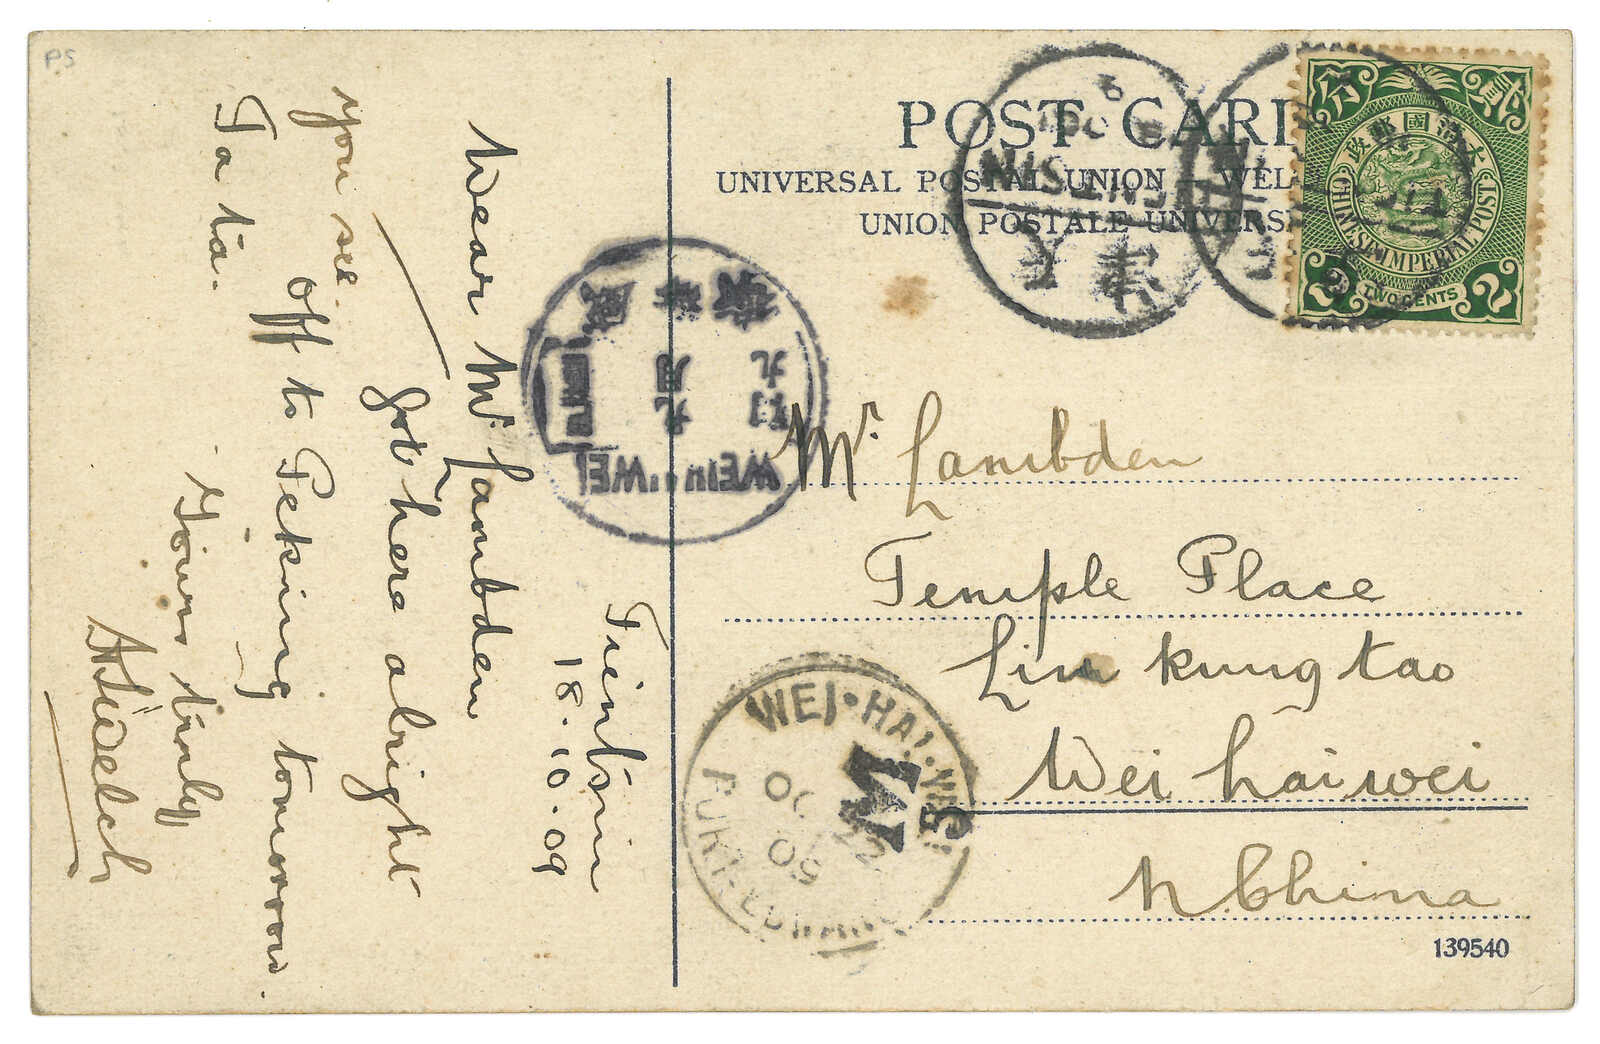 PS
POST CAR
UNIVERSAL POSTAL UNION – WEL
UNION POSTALE UNIVERS
大清國郵政
貳分
CHINESE IMPERIAL POST
2 TWO CENTS 2
TIENTSIN
WEIHAIWEI
九月
九日
Mr. Lambden
Temple Place
Liu kung tao
Wei hai wei
N China
WEI·HAI·WEI
PORT EDWARD
OC 22
09
139540
Tientsin
18.10.09
Dear Mr. Lambden
Got here alright
you see.
Off to Peking tomorrow.
Ta ta.
Yours truly